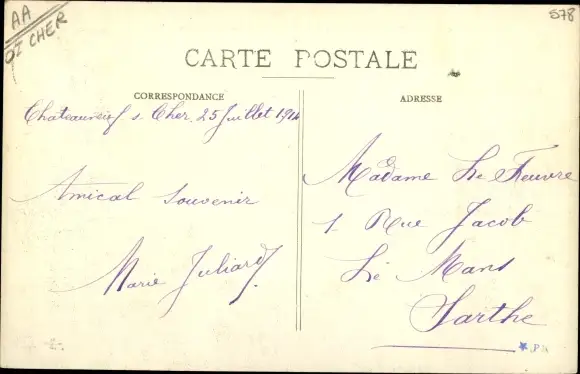 AA
OI CHER
578
CARTE POSTALE
CORRESPONDANCE
ADRESSE
Chateauneuf s. Cher. 25 Juillet 1914
Amical souvenir
Marie Juliard
Madame Le Feuvre
1 Rue Jacob
Le Mans
Sarthe